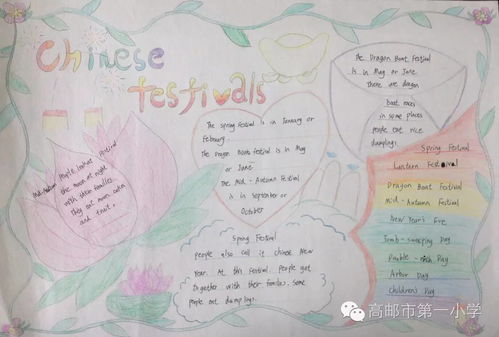 Chinese
festivals
The Dragon Boat Festival
is in May or June.
There are dragon
boat races
in some places
people eat rice
dumplings
The spring Festival is in January or
February
The Dragon Boat Festival is in May
or June
The Mid-Autumn Festival
is in September or
October
people look at
the moon at night
with their families.
They eat moon cakes
and fruit.
Spring Festival
people also call it Chinese New
Year. At this festival. People get
together with their families. Some
people eat dumplings.
Spring Festival
Lantern Festival
Dragon Boat Festival
Mid-Autumn Festival
New Year's Eve
Tomb-sweeping Day
Double-ninth Day
Arbor Day
Children's Day
高邮市第一小学